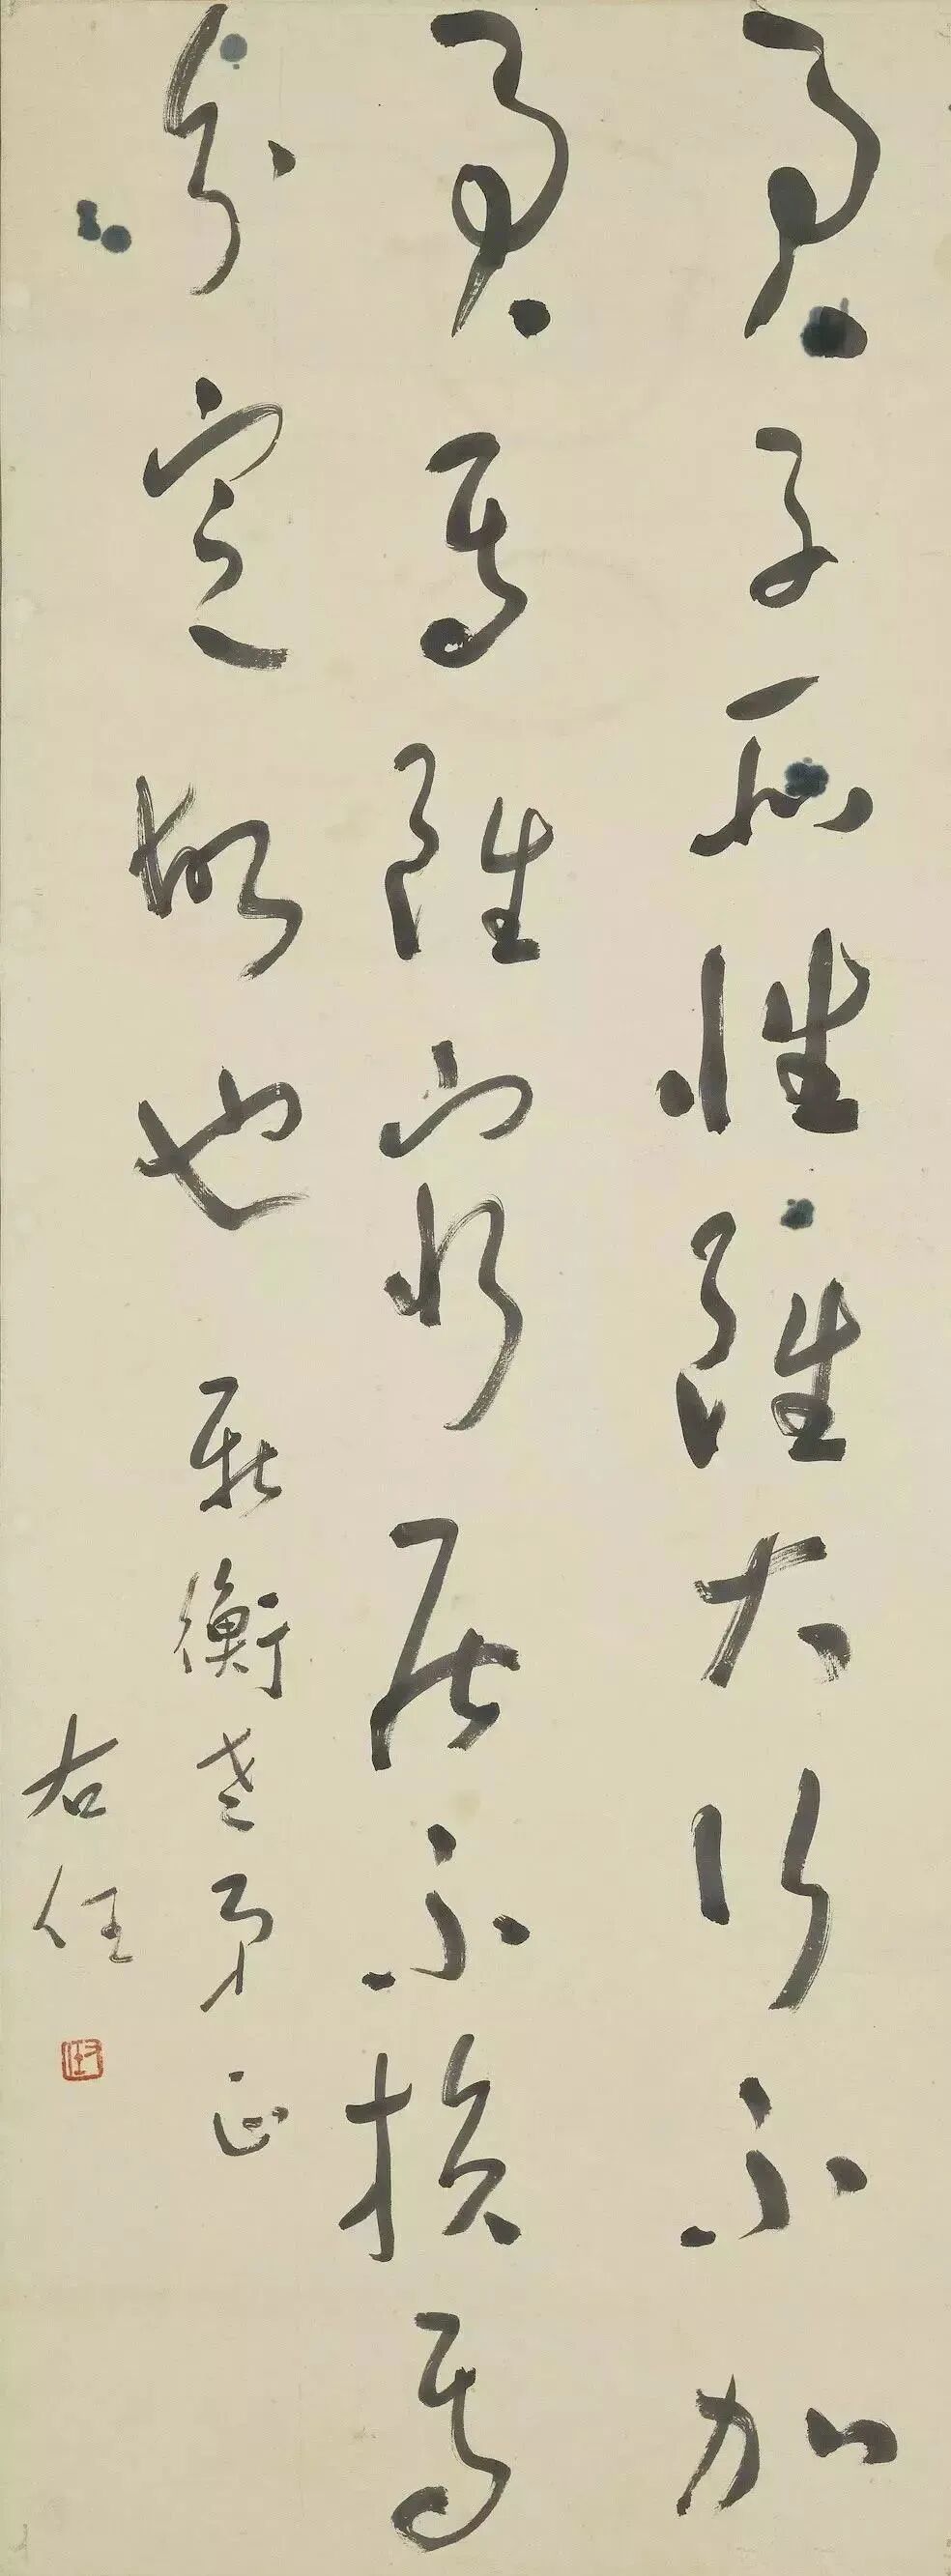 君子所性雖大行不加
君焉雖窮居不損焉
分定故也
衡老弟正
右任
右任